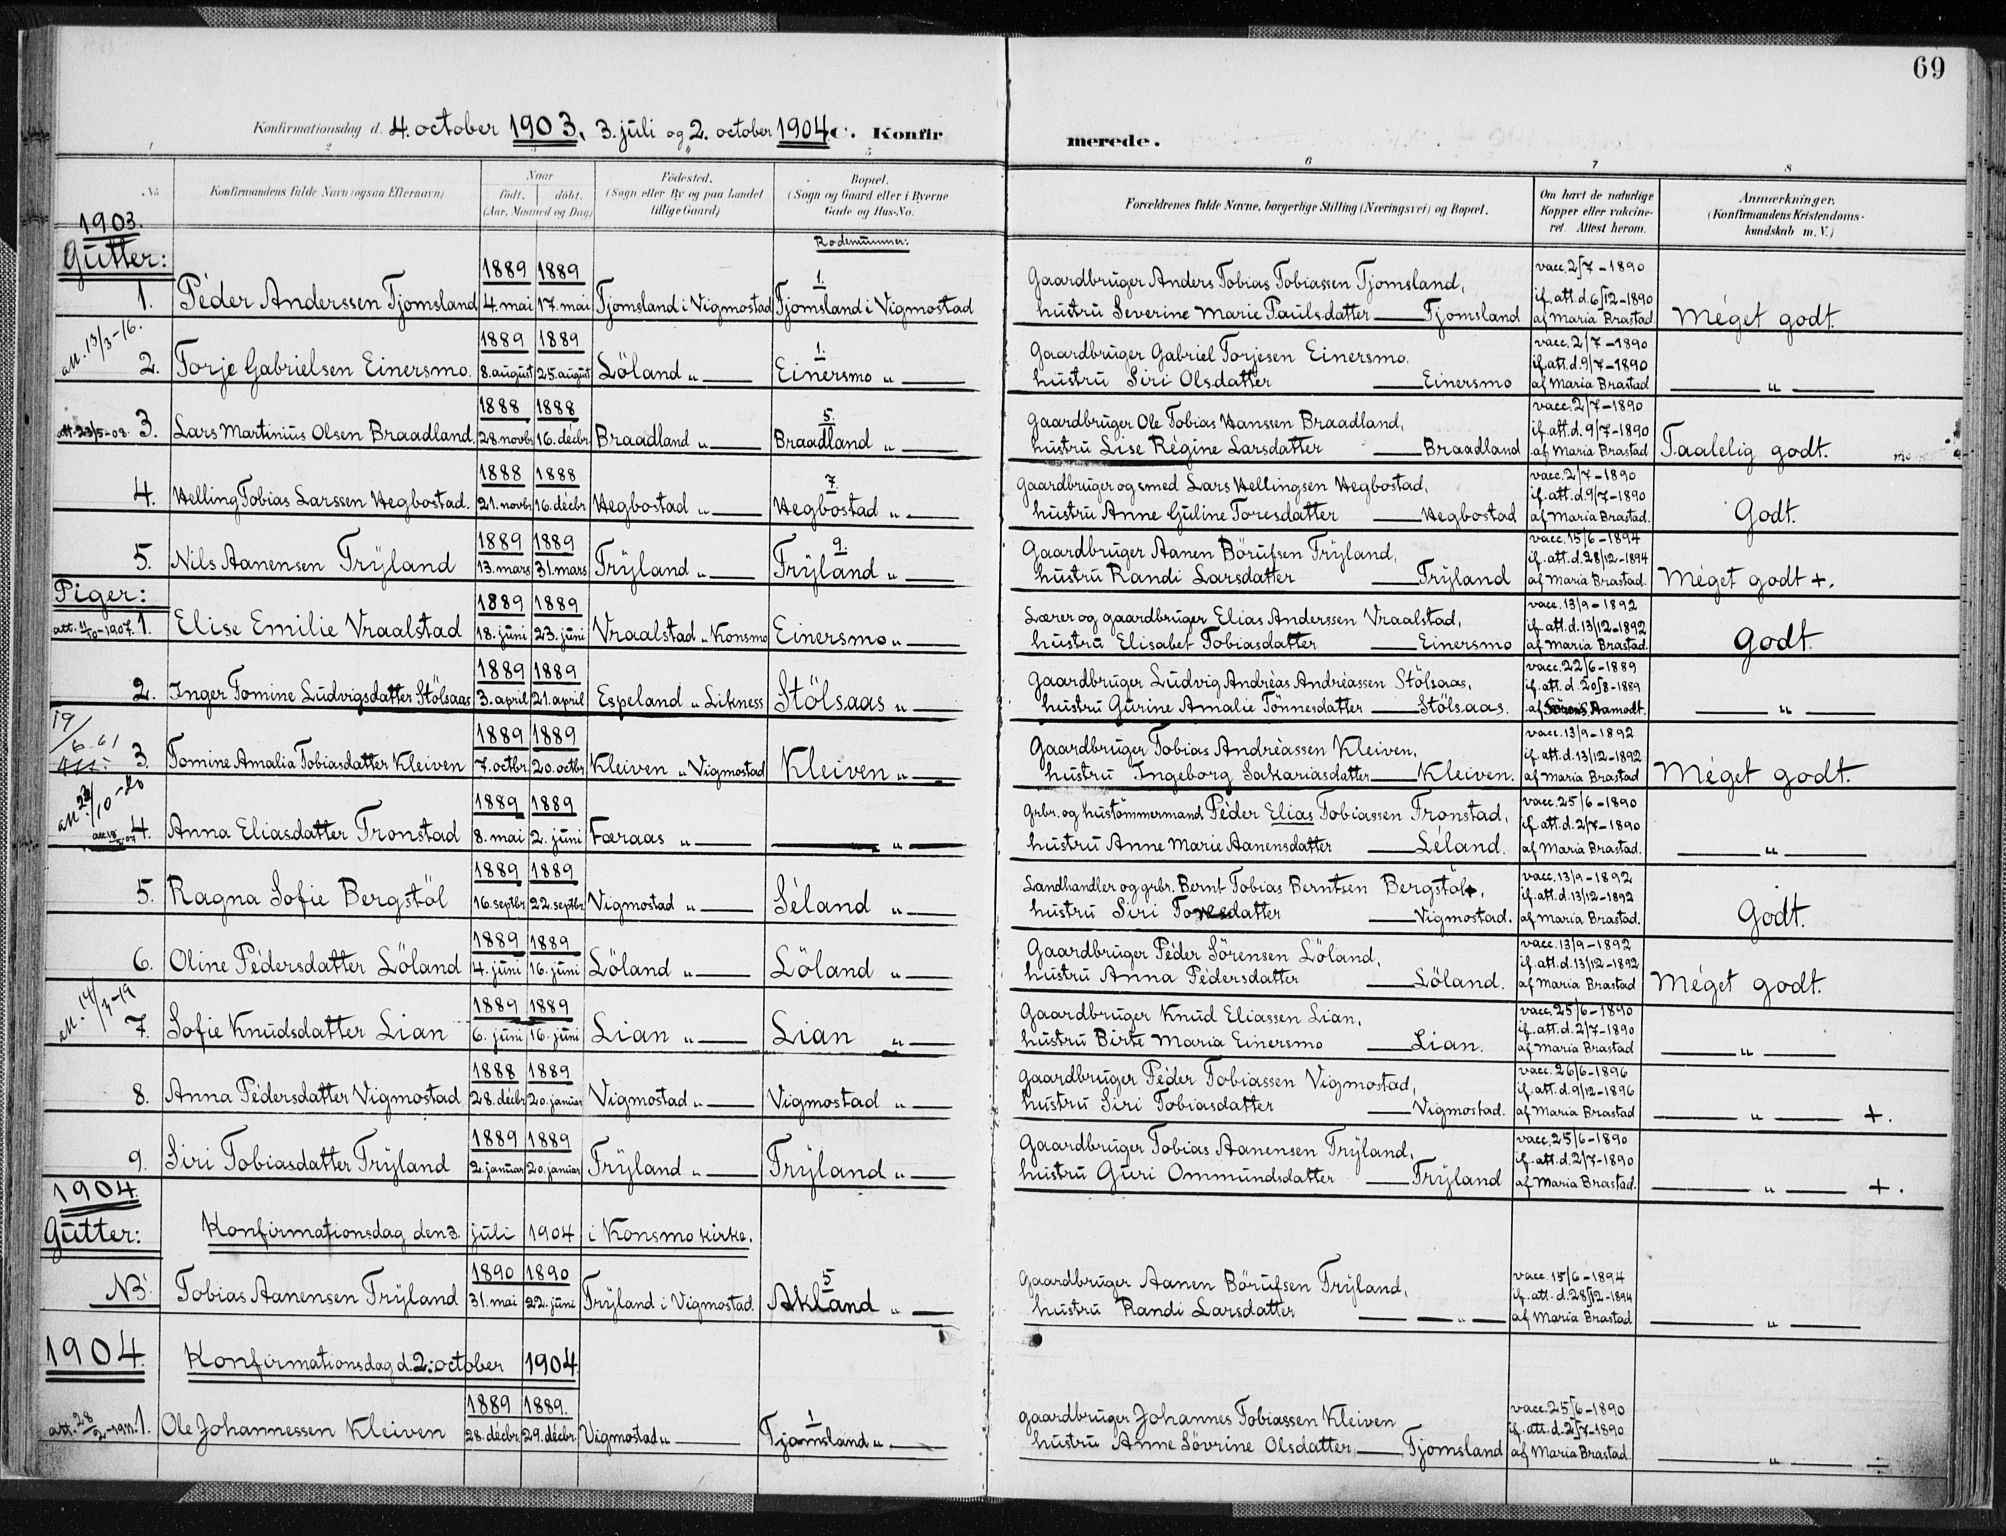 69
Konfirmationsdag d. 4. october 1903, 3. juli og 2. october 1904 C. Konfirmerede.
1 2 3 5 6 7 8
No. Konfirmandens fulde Navn (ogsaa Efternavn) Naar født. døbt. (Aar, Maaned og Dag) Fødested. (Sogn eller By og paa Landet tillige Gaard) Bopæl. (Sogn og Gaard eller i Byerne Gade og Hus-No. Forældrenes fulde Navne, borgerlige Stilling (Næringsvei) og Bopæl. Om havt de naturlige Kopper eller vakcineret. Attest herom. Anmærkninger. (Konfirmandens Kristendomskundskab m. V.)
1903.
Gutter:
Rodenummer:
1889 1889 1.
1. Péder Anderssen Tjomsland 4. mai 17. mai Tjomsland i Vigmostad Tjomsland i Vigmostad
Gaardbruger Anders Tobias Tobiassen Tjomsland,
hustru Severine Marie Paulsdatter — Tjomsland
vacc. 2/7 - 1890
if. att. d. 6/12 - 1890
af Maria Brastad
Méget godt.
att. 13/3 - 16.
1889 1889 1.
2. Torje Gabrielsen Einersmo. 8. august 25. august Löland „ — Einersmo „ —
Gaardbruger Gabriel Torjesen Einersmo,
hustru Siri Olsdatter — Einersmo
vacc. 2/7 - 1890
if. att. d. 9/7 - 1890
af Maria Brastad
— „ —
1888 1888 5.
att. 23/5 - 08. 3. Lars Martinius Olsen Braadland. 28. novbr 16. décbr Braadland „ — Braadland „ —
Gaardbruger Ole Tobias Hanssen Braadland,
hustru Lise Régine Larsdatter — Braadland
vacc. 2/7 - 1890
if. att. d. 9/7 - 1890
af Maria Brastad
Taalelig godt.
1888 1888 7.
4. Helling Tobias Larssen Hegbostad. 21. novbr 16. décbr Hegbostad „ — Hegbostad „ —
Gaardbruger og smed Lars Hellingsen Hegbostad,
hustru Anne Guline Toresdatter — Hegbostad
vacc. 2/7 - 1890
if. att. d. 9/7 - 1890
af Maria Brastad.
Godt.
1889 1889 9.
5. Nils Aanensen Trÿland 13. mars 31. mars Trÿland „ — Trÿland „ —
Gaardbruger Aanen Börufsen Trÿland,
hustru Randi Larsdatter — Trÿland
vacc. 15/6 - 1894
if. att. d. 28/12 - 1894
af Maria Brastad.
Méget godt +.
Piger:
1889 1889
att. 11/10 - 1907. 1. Elise Emilie Vraalstad 18. juni 23. juni Vraalstad „ Konsmo Einersmo „ —
Lærer og gaardbruger Elias Anderssen Vraalstad,
hustru Elisabet Tobiasdatter — Einersmo
vacc. 13/9 - 1892
if. att. d. 13/12 - 1892
af Maria Brastad.
Godt.
1889 1889
2. Inger Tomine Ludvigsdatter Stölsaas 3. april 21. april Espeland „ Likness Stölsaas „ —
Gaardbruger Ludvig Andréas Andréassen Stölsaas,
hustru Gurine Amalie Tönnesdatter — Stölsaas.
vacc. 22/6 - 1889
if. att. d. 20/8 - 1889
af Aamodt.
— „ —
19/6.61
1889 1889
3. Tomine Amalia Tobiasdatter Kleiven 7. octbr 20. octbr Kleiven „ Vigmostad Kleiven „ —
Gaardbruger Tobias Andréassen Kleiven,
hustru Ingeborg Sakariasdatter — Kleiven.
vacc. 13/9 - 1892
if. att. d. 13/12 - 1892
af Maria Brastad
Méget godt.
1889 1889
4. Anna Eliasdatter Tronstad 8. mai 2. juni Færaas „ — — „ —
Grbr. og hustömmermand Péder Elias Tobiassen Tronstad,
hustru Anne Marie Aanensdatter — Léland.
vacc. 25/6 - 1890
if. att. d. 2/7 - 1890
af Maria Brastad.
— „ —
1889 1889
5. Ragna Sofie Bergstöl 16. septbr 22. septbr Vigmostad „ — Séland „ —
Landhandler og grbr. Bernt Tobias Berntsen Bergstöl,
hustru Siri Toresdatter — Vigmostad.
vacc. 13/9 - 1892
if. att. d. 13/12 - 1892
af Maria Brastad.
Godt.
1889 1889
6. Oline Pédersdatter Löland 4. juni 16. juni Löland „ — Löland „ —
Gaardbruger Péder Sörensen Löland,
hustru Anna Pédersdatter — Löland.
vacc. 13/9 - 1892
if. att. d. 13/12 - 1892
af Maria Brastad
Méget godt.
1889 1889
7. Sofie Knudsdatter Lian 6. juni 16. juni Lian „ — Lian „ —
Gaardbruger Knud Eliassen Lian,
hustru Birte Maria Einersmo — Lian.
vacc. 25/6 - 1890
if. att. d. 2/7 - 1890
af Maria Brastad
— „ —
1888 1889
8. Anna Pédersdatter Vigmostad 28. décbr 20. januar Vigmostad „ — Vigmostad „ —
Gaardbruger Péder Tobiassen Vigmostad,
hustru Siri Tobiasdatter — Vigmostad.
vacc. 26/6 - 1896
if. att. d. 9/12 - 1896
af Maria Brastad
— „ — +.
1889 1889
9. Siri Tobiasdatter Trÿland 2. januar 20. januar Trÿland „ — Trÿland „ —
Gaardbruger Tobias Aanensen Trÿland,
hustru Guri Ommundsdatter — Trÿland
vacc. 25/6 - 1890
if. att. d. 2/7 - 1890
af Maria Brastad.
— „ — +.
1904.
Gutter: Konfirmationsdag den 3. juli 1904 i Konsmo kirke.
1890 1890 5
NB. Tobias Aanensen Trÿland 31. mai 22. juni Trÿland i Vigmostad. Akland „ —
Gaardbruger Aanen Börufsen Trÿland,
hustru Randi Larsdatter — — „ —
vacc. 15/6 - 1894
if. att. d. 28/12 - 1894
af Maria Brastad
— „ —
1904. Konfirmationsdag d. 2. october 1904.
1889 1889. 1
att. 28/2 - 1911. 1. Ole Johannessen Kleiven 28. décbr. 29. décbr. Vigmostad „ — Tjomsland „ —
gaardbruger Johannes Tobiassen Kleiven
hustru Anne Sövrine Olsdatter, — Tjomsland
vacc. 25/6 - 1890
if. att. d. 2/7 - 1890
af Maria Brastad.
— „ — ÷